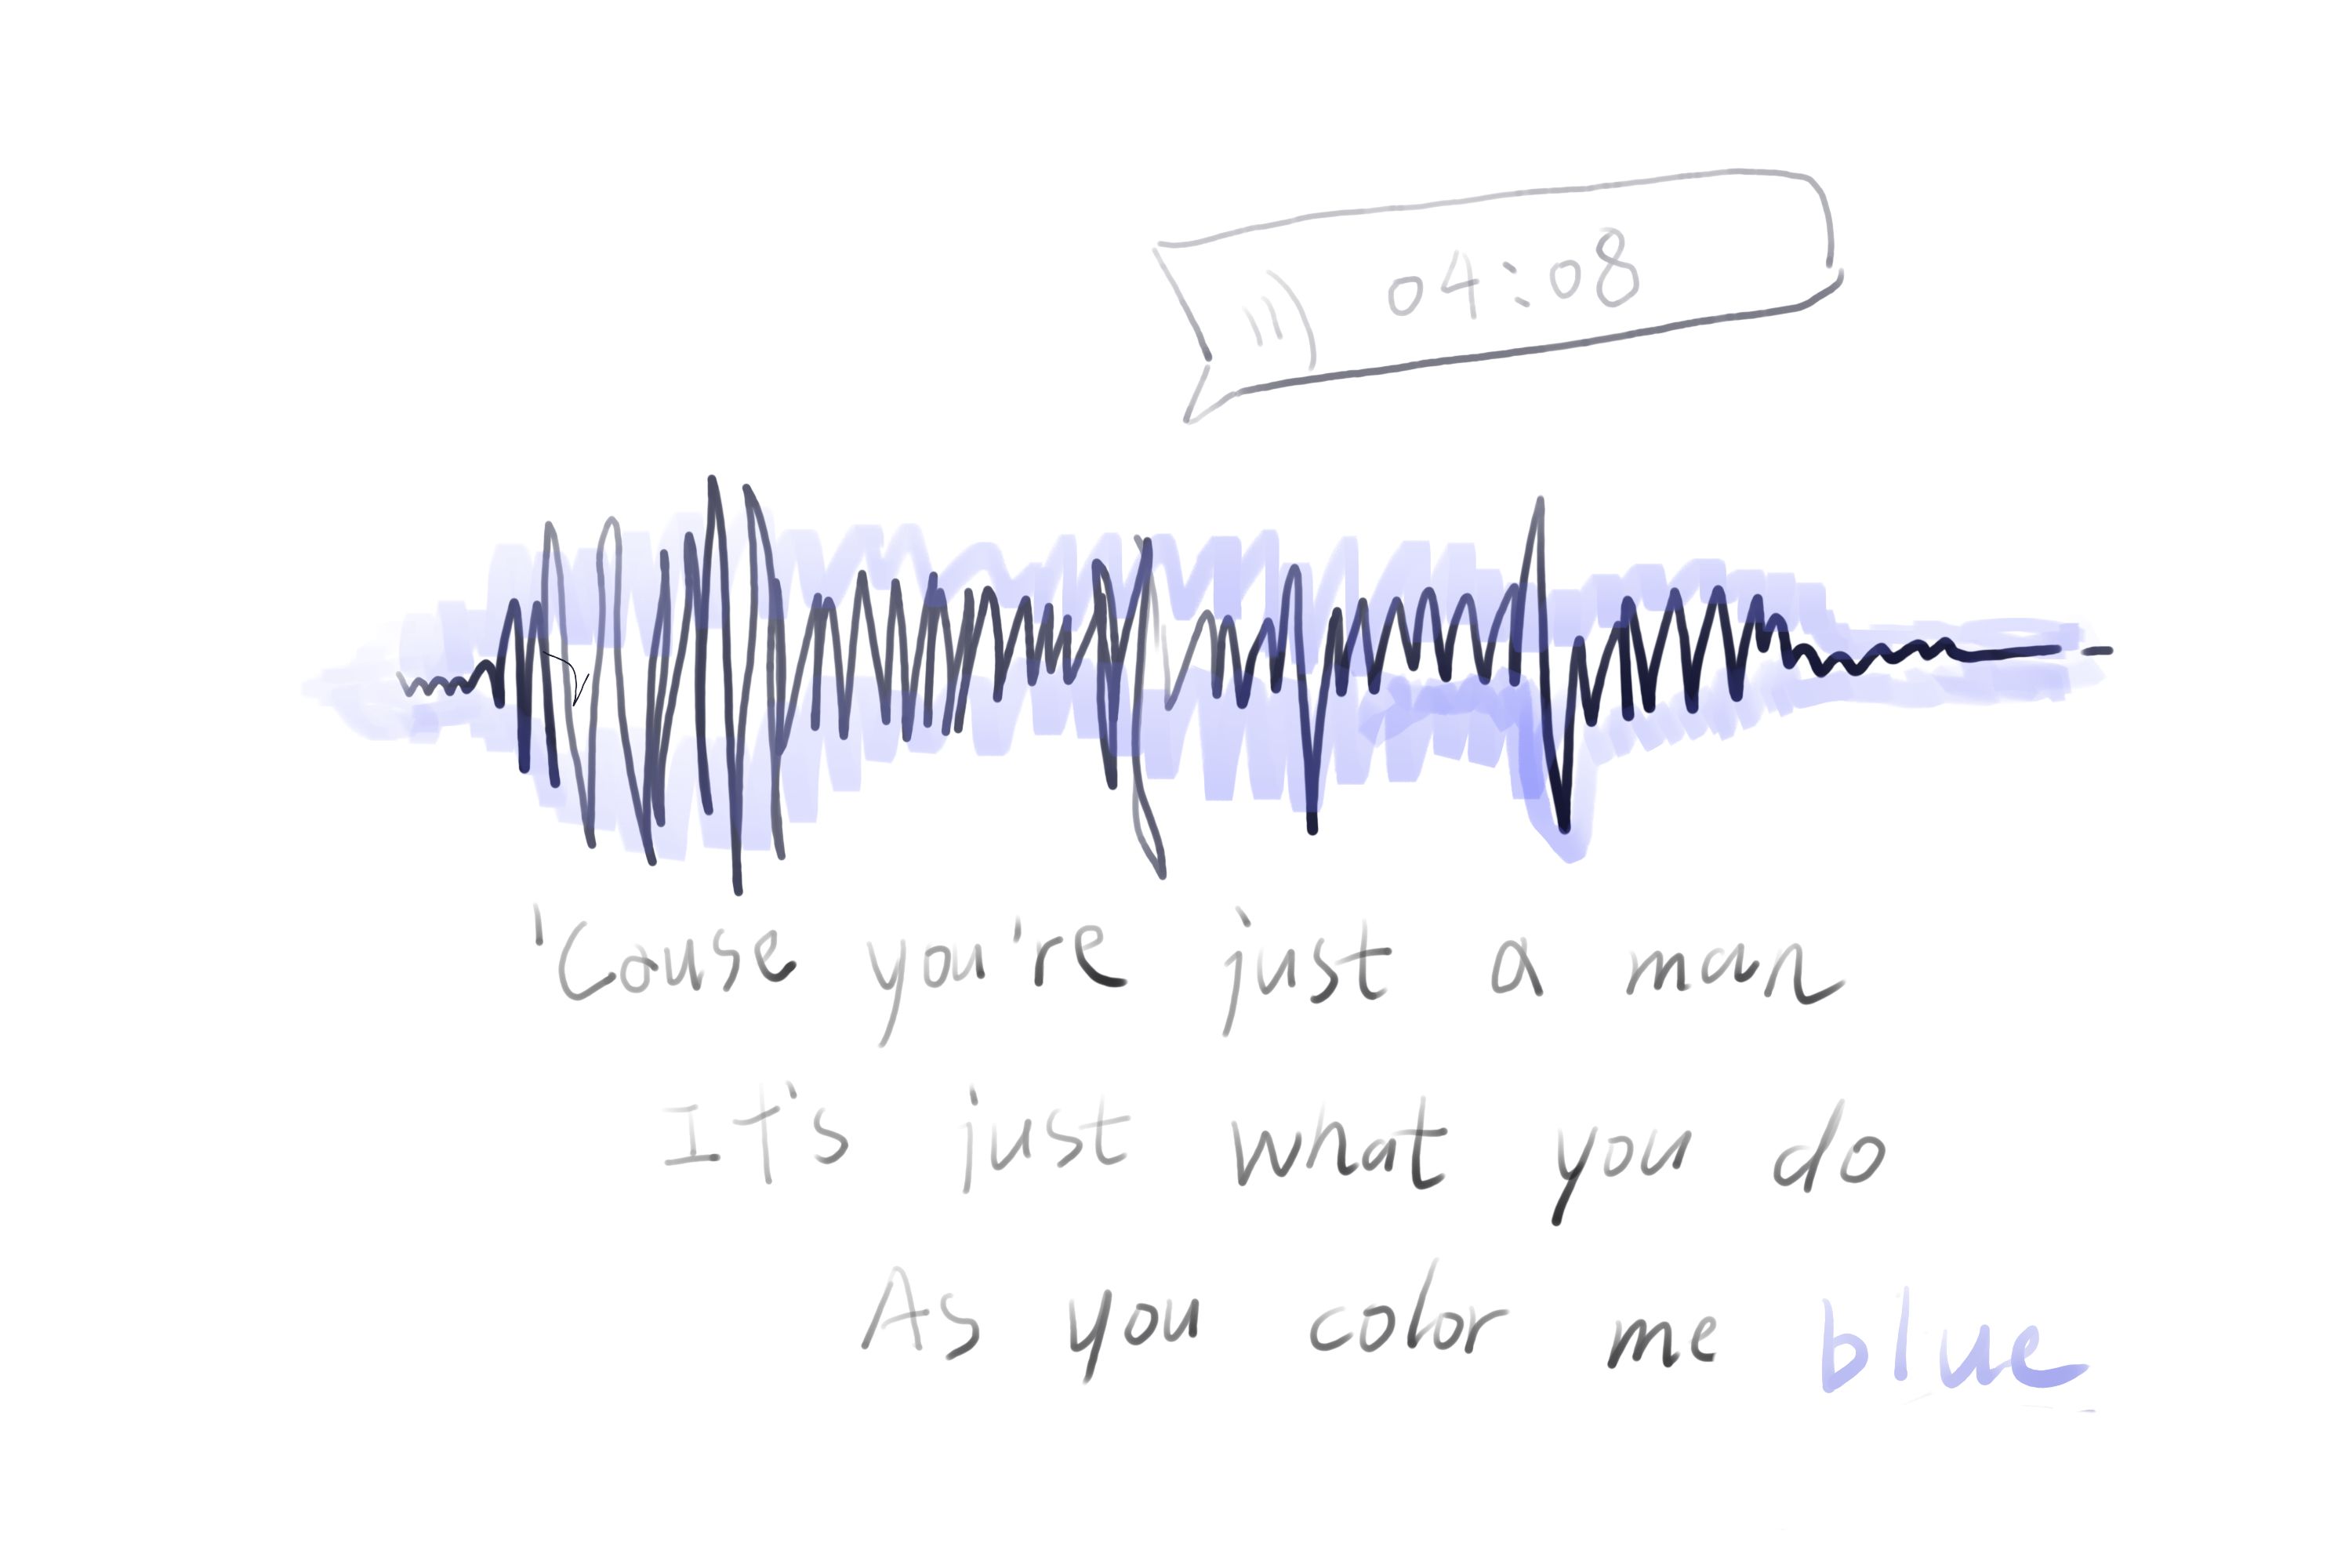 04:08
'Cause you're just a man
It's just what you do
As you color me blue